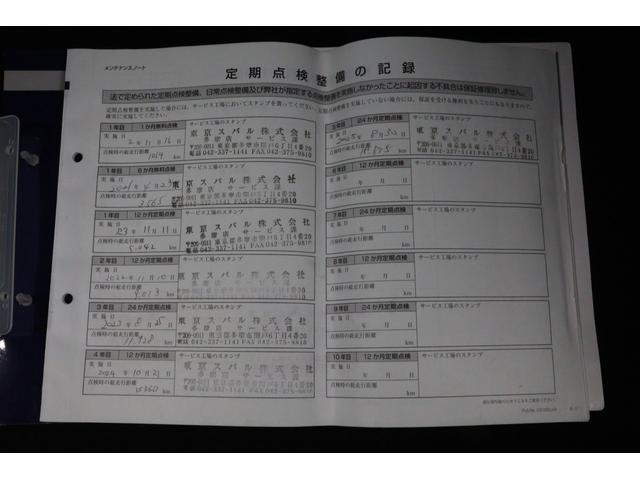 メンテナンスノート
定期点検整備の記録
法で定められた定期点検整備、日常点検整備及び弊社が指定する点検整備を実施しなかったことに起因する不具合は保証修理致しません。
定期点検整備を実施した場合には、サービス工場においてスタンプを貰ってください。定期点検整備を実施していない場合には、保証を受ける権利を失うことにもなりますので、
確実に実施してください。
1年目 1か月無料点検
サービス工場のスタンプ
実施日
点検時の総走行距離
1019 km
東京スバル株式会社
多摩店 サービス課
〒206-0011 東京都多摩市関戸6丁目4番20
電話 042-337-1141 FAX 042-375-9810
1年目 6か月無料点検
サービス工場のスタンプ
実施日
2021年4月23日
点検時の総走行距離
3565 km
東京スバル株式会社
多摩店 サービス課
〒206-0011 東京都多摩市関戸6丁目4番20
電話 042-337-1141 FAX 042-375-9810
1年目 12か月定期点検
サービス工場のスタンプ
実施日
点検時の総走行距離
km
東京スバル株式会社
多摩店 サービス課
〒206-0011 東京都多摩市関戸6丁目4番20
電話 042-337-1141 FAX 042-375-9810
2年目 12か月定期点検
サービス工場のスタンプ
実施日
2022年11月10日
点検時の総走行距離
9013 km
東京スバル株式会社
多摩店 サービス課
3年目 24か月定期点検
サービス工場のスタンプ
実施日
2023年8月25日
点検時の総走行距離
11,928 km
東京スバル株式会社
多摩店 サービス課
〒206-0011 東京都多摩市関戸6丁目4番20
電話 042-337-1141 FAX 042-375-9810
4年目 12か月定期点検
サービス工場のスタンプ
実施日
2024年10月23日
点検時の総走行距離
15360 km
東京スバル株式会社
多摩店 サービス課
5年目 24か月定期点検
サービス工場のスタンプ
実施日
点検時の総走行距離
km
東京スバル株式会社
多摩店 サービス課
〒206-0011 東京都多摩市関戸6丁目4番20
電話 042-337-1141 FAX 042-375-9810
6年目 12か月定期点検
サービス工場のスタンプ
実施日
年 月 日
点検時の総走行距離
km
7年目 24か月定期点検
サービス工場のスタンプ
実施日
年 月 日
点検時の総走行距離
km
8年目 12か月定期点検
サービス工場のスタンプ
実施日
年 月 日
点検時の総走行距離
km
9年目 24か月定期点検
サービス工場のスタンプ
実施日
年 月 日
点検時の総走行距離
km
10年目 12か月定期点検
サービス工場のスタンプ
実施日
年 月 日
点検時の総走行距離
km